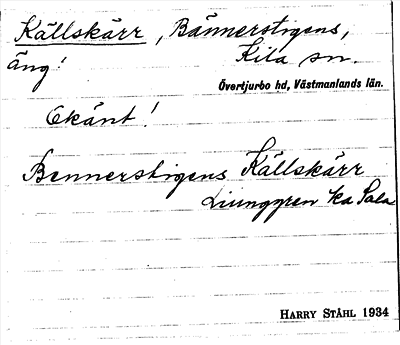 Källskärr, Bännerstigens,
äng! Kila sn.
Övertjurbo hd, Västmanlands län.
Okänt!
Bennerstigens Källskärr
Ljunggren ka Sala
HARRY STÅHL 1934